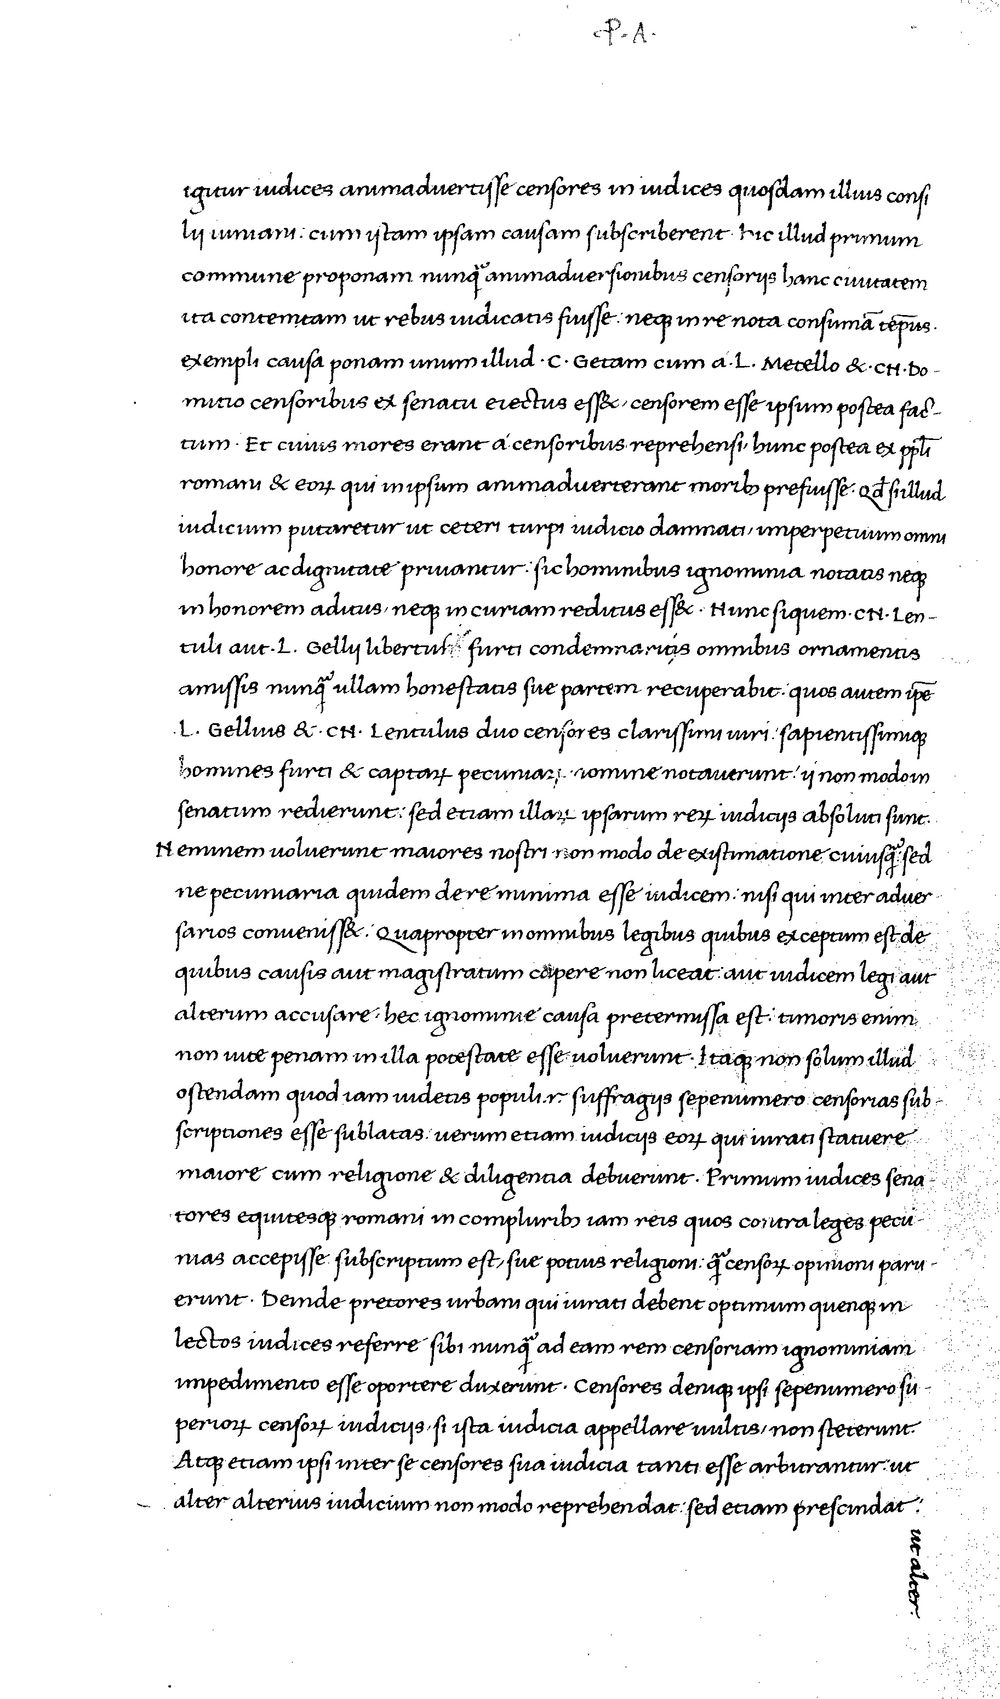 P. A.
igitur iudices animaduertisse censores in iudices quosdam illius consi
lii iuniani: cum istam ipsam causam subscriberent. Hic illud primum
commune proponam nunq̃ animaduersionibus censoriis hanc ciuitatem
ita contemtam ut rebus iudicatis fuisse: neqꝫ in re nota consumã tẽpus.
exempli causa ponam unum illud. C. Getam cum a. L. Metello &. CN. Do-
mitio censoribus ex senatu eiectus ess&, censorem esse ipsum postea fac-
tum. Et cuius mores erant á censoribus reprehensi, hunc postea ex ppl̃i
romani & eoꝝ qui in ipsum animaduerterant moribꝫ prefuisse. Qđ si illud
iudicium putaretur ut ceteri turpi iudicio damnati, imperpetuum omni
honore ac dignitate priuantur: sic hominibus ignominia notatis neqꝫ
in honorem aditus, neqꝫ in curiam reditus ess&. Nunc si quem. CN. Len-
tuli aut. L. Gellii libertus furti condemnarit is omnibus ornamentis
amissis nunq̃ ullam honestatis sue partem recuperabit: quos autem ip̃e
.L. Gellius &. CN. Lentulus duo censores clarissimi uiri: sapientissimiqꝫ
homines furti & captaꝝ pecuniaꝝ nomine notauerunt: ii non modo in
senatum redierunt: sed etiam illaꝝ ipsarum reꝝ iudiciis absoluti sunt.
Neminem uoluerunt maiores nostri non modo de existimatione cuiusq̃: sed
ne pecuniaria quidem de re minima esse iudicem: nisi qui inter aduer
sarios conueniss&. Quapropter in omnibus legibus quibus exceptum est de
quibus causis aut magistratum capere non liceat: aut iudicem legi aut
alterum accusare: hec ignominie causa pretermissa est: timoris enim
non uite penam in illa potestate esse uoluerunt. Itaqꝫ non solum illud
ostendam quod iam uidetis populi.r. suffragiis sepenumero censorias sub-
scriptiones esse sublatas: uerum etiam iudiciis eoꝝ qui iurati statuere
maiore cum religione & diligentia debuerunt. Primum iudices sena-
tores equitesqꝫ romani in compluribꝫ iam reis quos contra leges pecu-
nias accepisse subscriptum est, sue potius religioni: q̃ censoꝝ opinioni paru-
erunt. Deinde pretores urbani qui iurati debent optimum quenqꝫ in
lectos iudices referre sibi nunq̃ ad eam rem censoriam ignominiam
impedimento esse oportere duxerunt. Censores deniqꝫ ipsi sepenumero su-
perioꝝ censoꝝ iudiciis, si ista iudicia appellare uultis, non steterunt.
Atqꝫ etiam ipsi inter se censores sua iudicia tanti esse arbitrantur: ut
alter alterius iudicium non modo reprehendat: sed etiam prescindat:
ut alter.